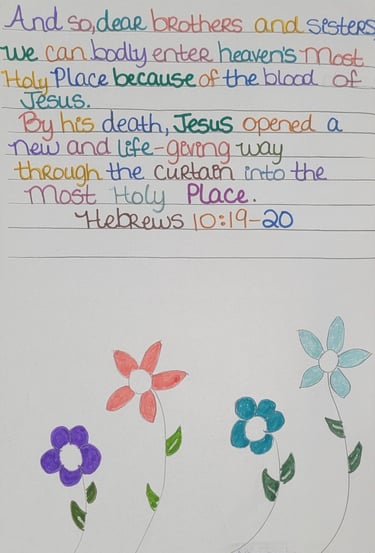 And so, dear brothers and sisters,
we can bodly enter heaven's Most
Holy Place because of the blood of
Jesus.
By his death, Jesus opened a
new and life-giving way
through the curtain into the
Most Holy Place.
Hebrews 10:19-20